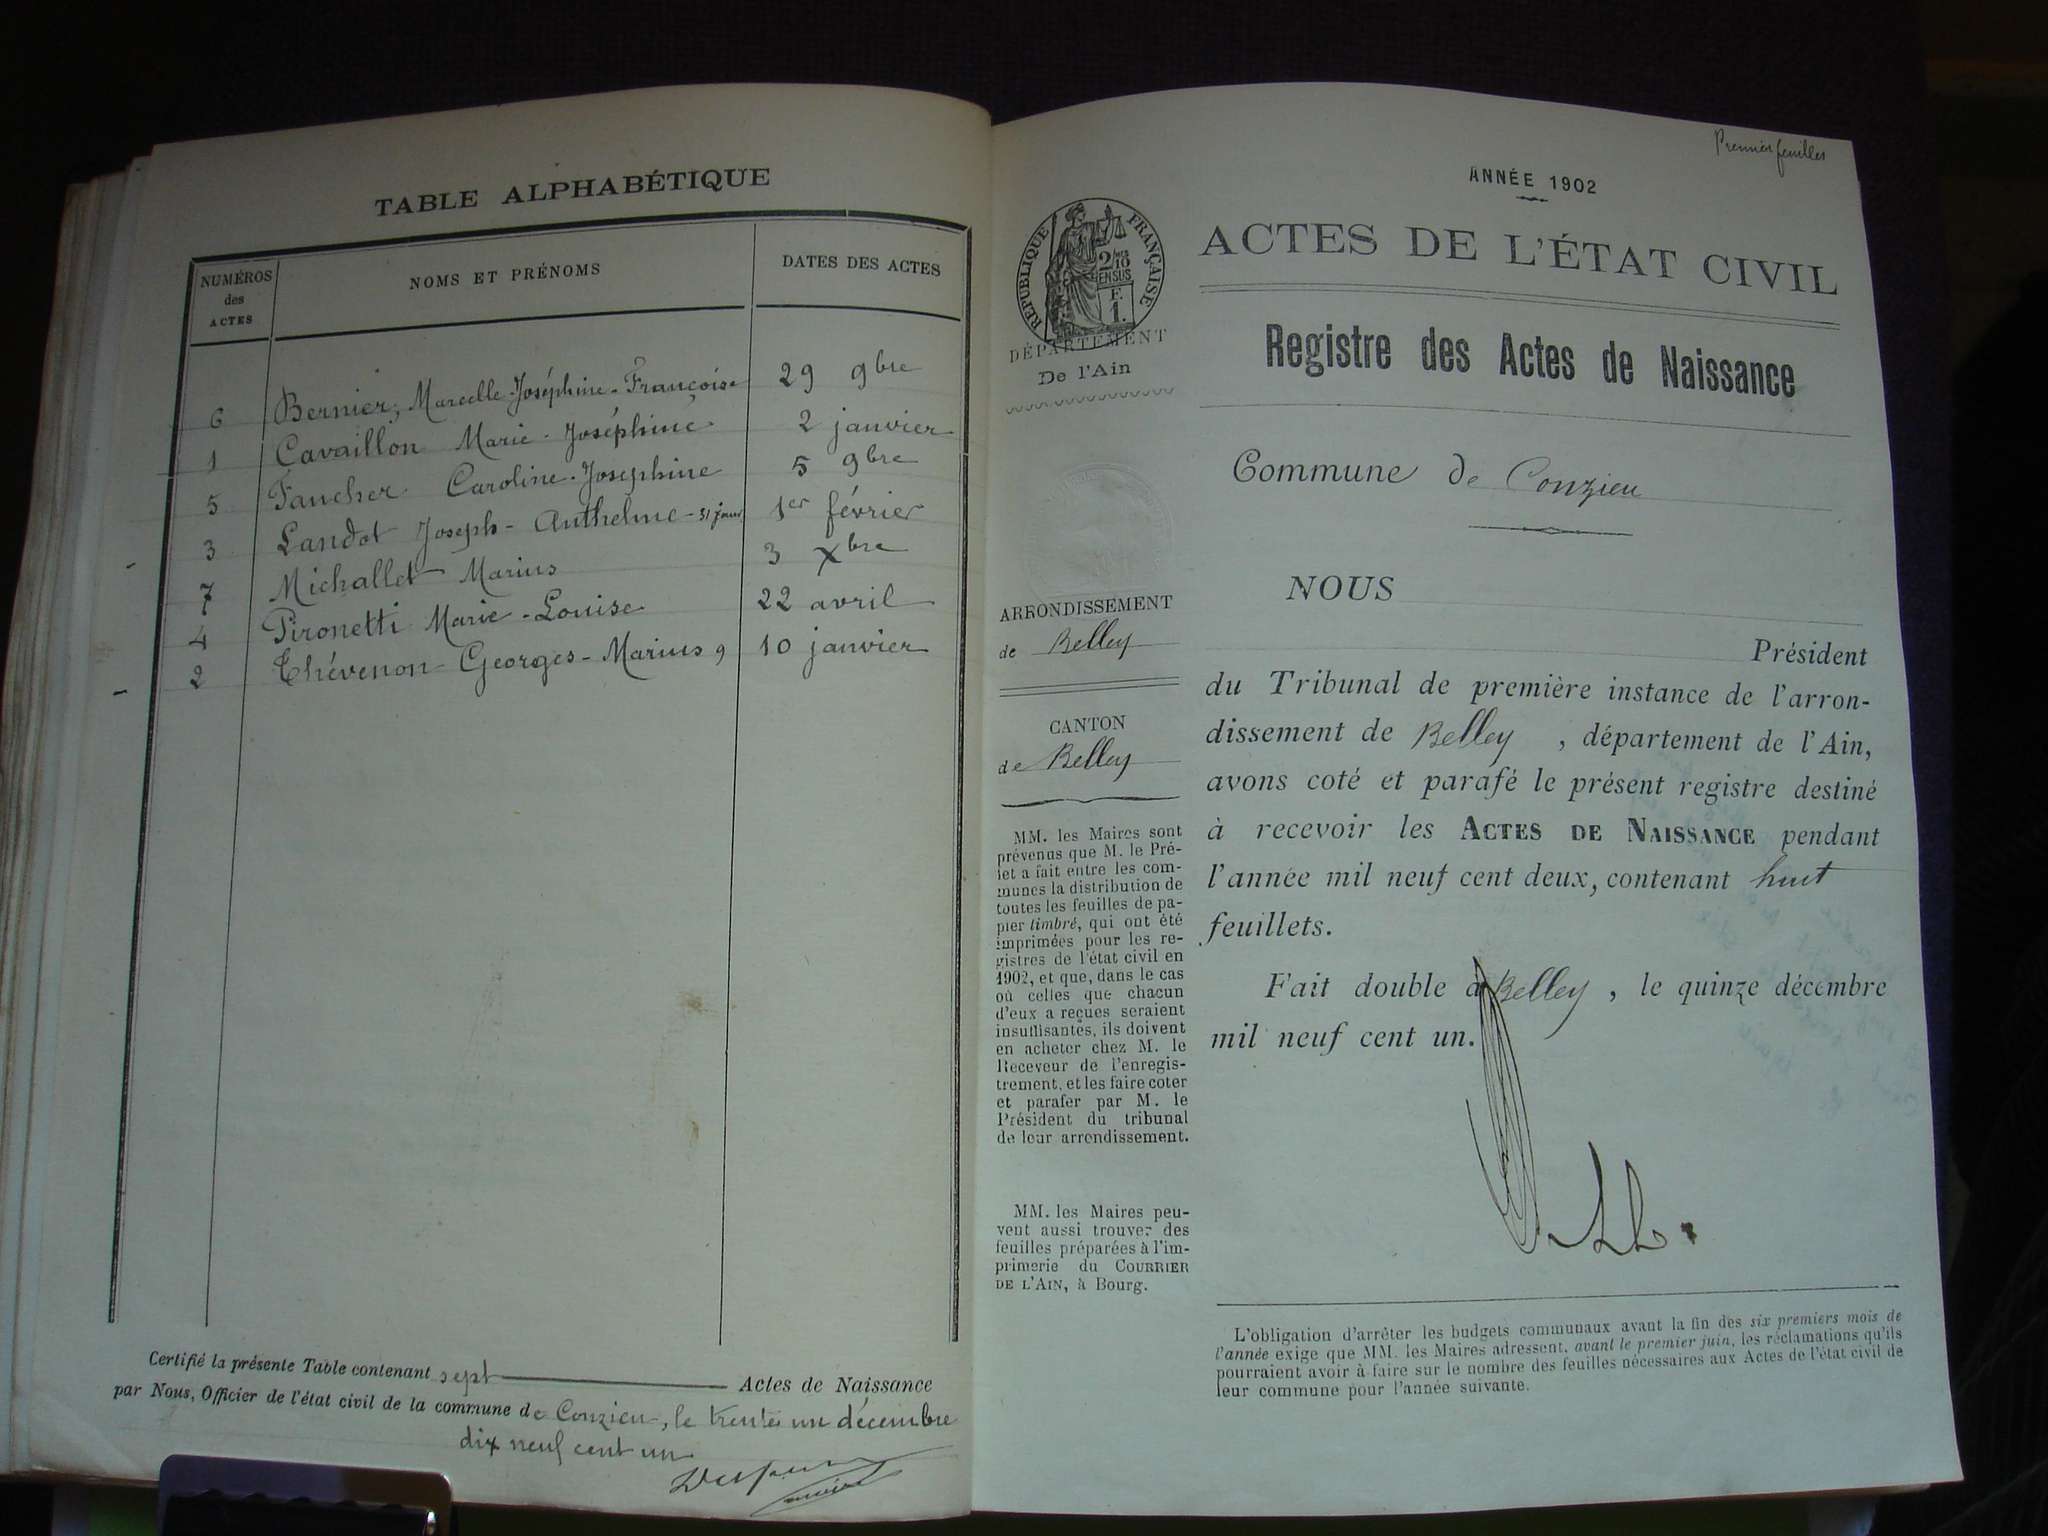 TABLE ALPHABÉTIQUE
NUMÉROS des ACTES
NOMS ET PRÉNOMS
DATES DES ACTES
6 Bernier, Marcelle-Joséphine-Françoise 29 9bre
1 Cavaillon Marie-Joséphine 2 janvier
5 Faucher Caroline-Joséphine 5 9bre
3 Landot Joseph-Anthelme-31 janv 1er février
7 Michallet Marius 3 Xbre
4 Pironetti Marie-Louise 22 avril
2 Thévenon Georges-Marius 9 10 janvier
Certifié la présente Table contenant sept Actes de Naissance
par Nous, Officier de l'état civil de la commune de Conzieu, le trente un décembre
dix neuf cent un
Premier feuillet
ANNÉE 1902
ACTES DE L'ÉTAT CIVIL
Registre des Actes de Naissance
Commune de Conzieu
NOUS
Président
du Tribunal de première instance de l'arron-
dissement de Belley, département de l'Ain,
avons coté et parafé le présent registre destiné
à recevoir les ACTES DE NAISSANCE pendant
l'année mil neuf cent deux, contenant huit
feuillets.
Fait double à Belley, le quinze décembre
mil neuf cent un.
L'obligation d'arrêter les budgets communaux avant la fin des six premiers mois de
l'année exige que MM. les Maires adressent, avant le premier juin, les réclamations qu'ils
pourraient avoir à faire sur le nombre des feuilles nécessaires aux Actes de l'état civil de
leur commune pour l'année suivante.
RÉPUBLIQUE FRANÇAISE
2/10
EN SUS
F.
1.
DÉPARTEMENT
De l'Ain
ARRONDISSEMENT
de Belley
CANTON
de Belley
MM. les Maires sont
prévenus que M. le Pré-
fet a fait entre les com-
munes la distribution de
toutes les feuilles de pa-
pier timbré, qui ont été
imprimées pour les re-
gistres de l'état civil en
1902, et que, dans le cas
où celles que chacun
d'eux a reçues seraient
insuffisantes, ils doivent
en acheter chez M. le
Receveur de l'enregis-
trement, et les faire coter
et parafer par M. le
Président du tribunal
de leur arrondissement.
MM. les Maires peu-
vent aussi trouver des
feuilles préparées à l'im-
primerie du COURRIER
DE L'AIN, à Bourg.